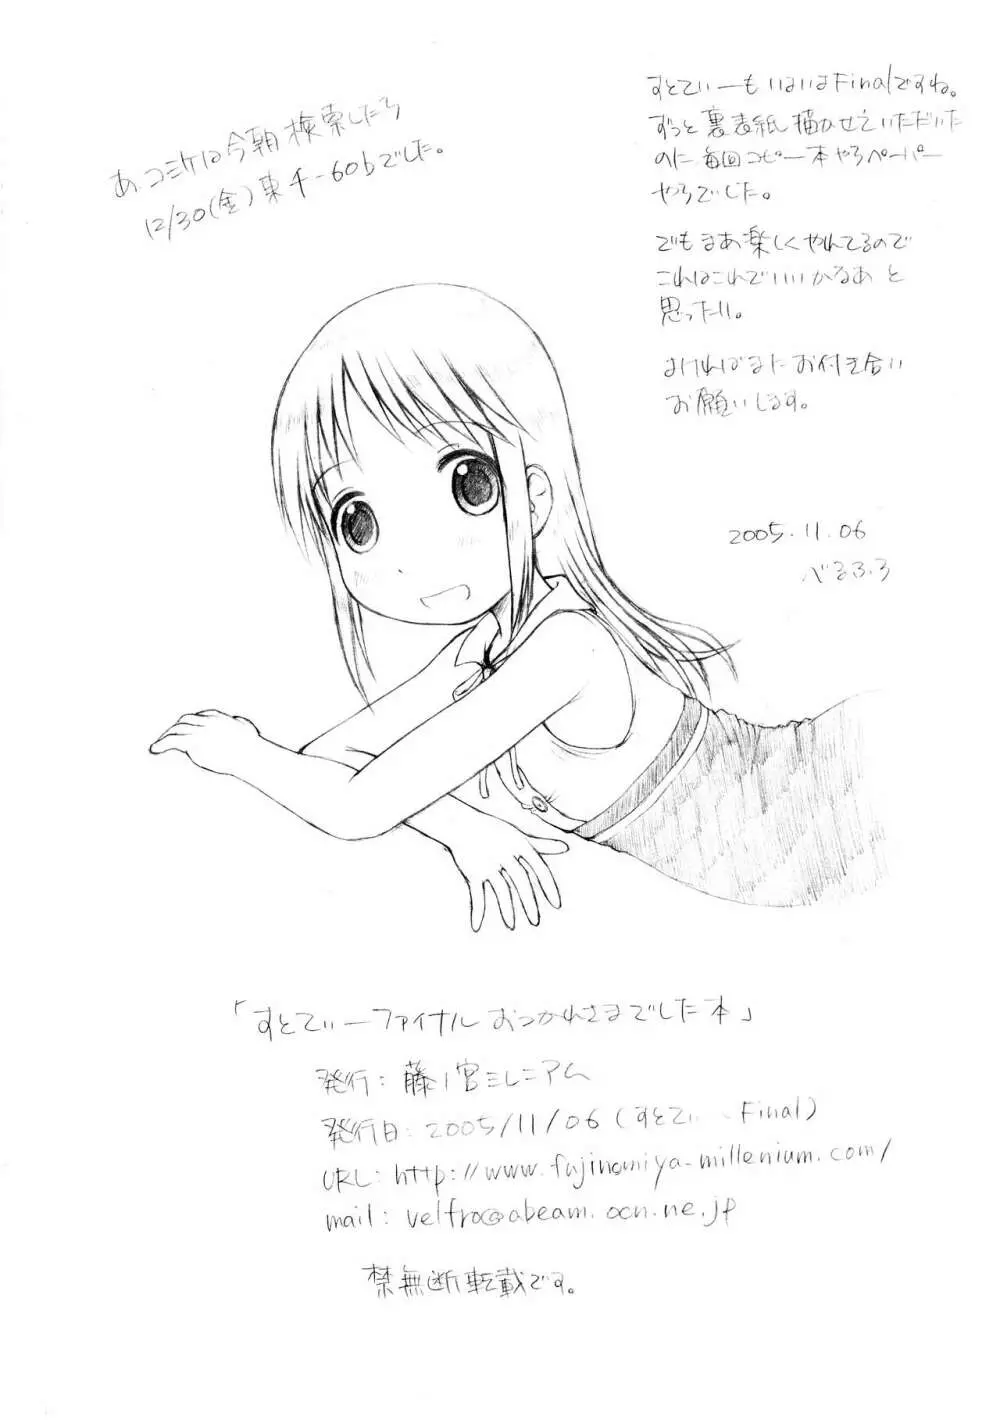 あ、コミケは今朝検索したら
12/30(金)東チ-60bでした。
すとてぃーもいよいよFinalですね。
ずっと裏表紙描かせていただいた
のに毎回コピー本やらペーパー
やらでした。
でもまあ楽しくやれてるので
これはこれでいいかなあと
思ったり。
よければまたお付き合い
お願いします。
2005.11.06
べるふろ
「すとてぃーファイナルおつかれさまでした本」
発行:藤ノ宮ミレニアム
発行日:2005/11/06(すとてぃーFinal)
URL:http://www.fujinomiya-millenium.com/
mail:velfro@abeam.ocn.ne.jp
禁無断転載です。